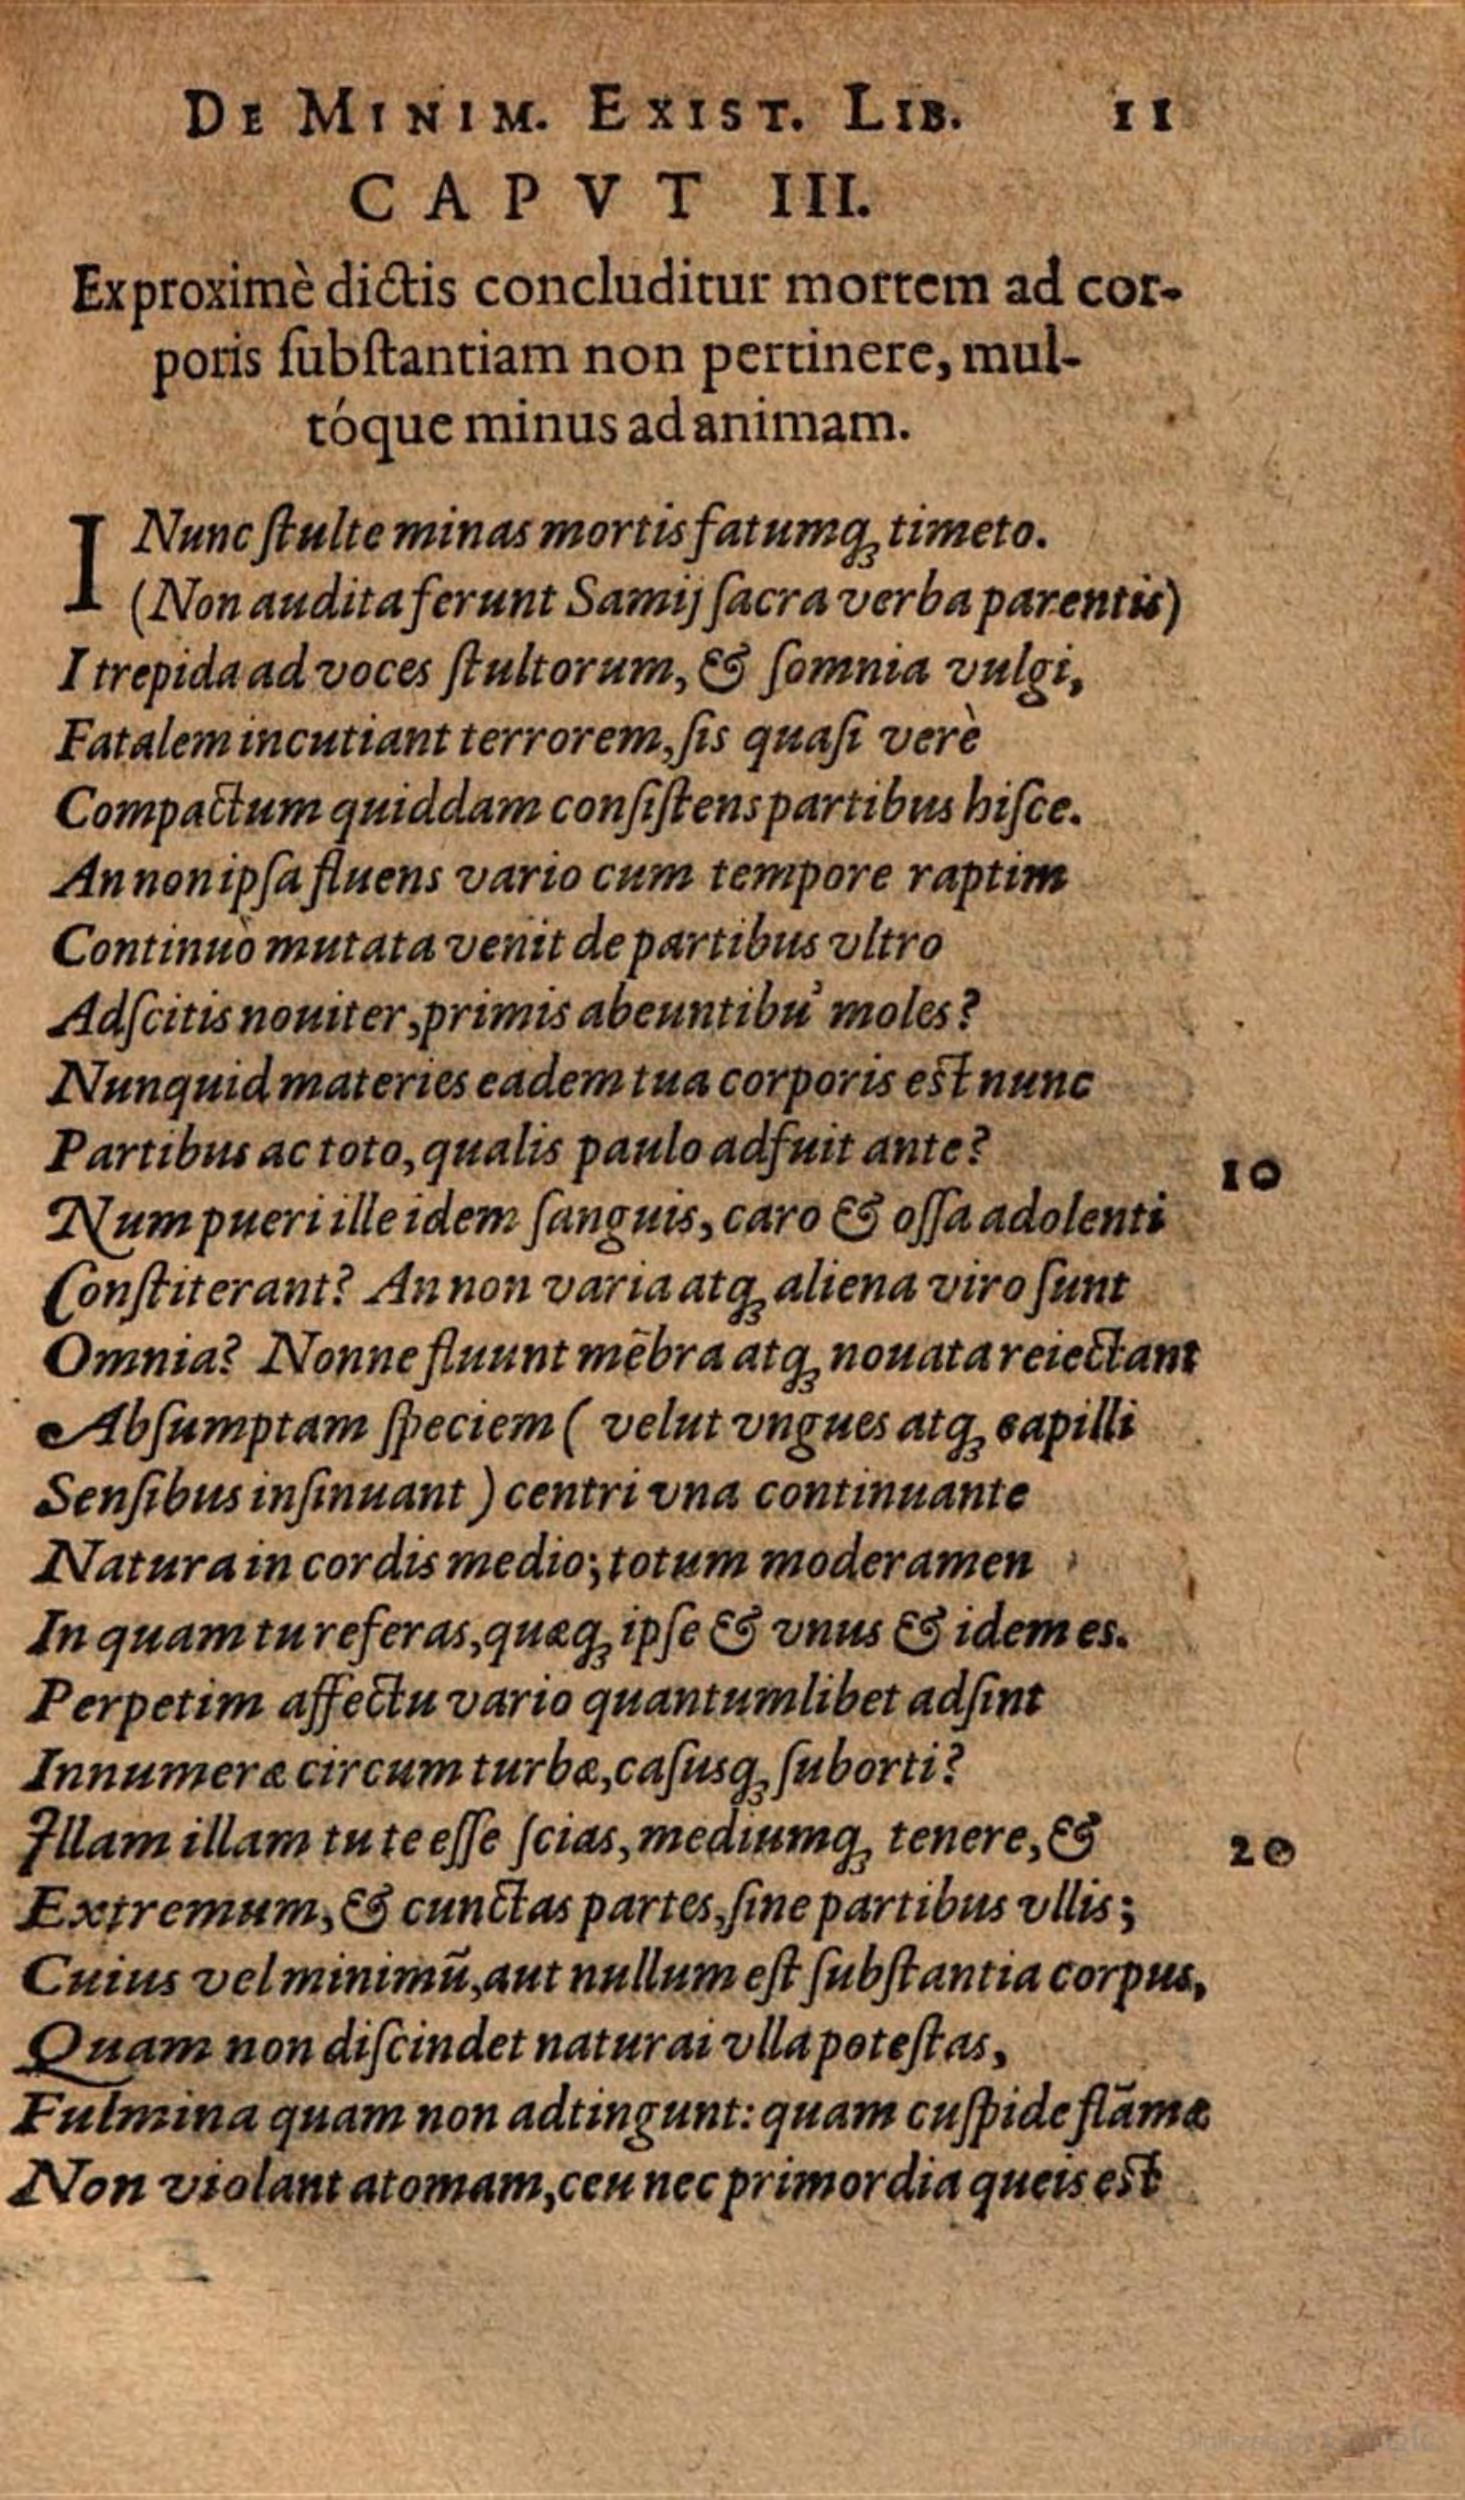 DE MINIM. EXIST. LIB. 11
CAPVT III.
Ex proximè dictis concluditur mortem ad cor-
poris ſubſtantiam non pertinere, mul-
tóque minus ad animam.
I Nunc ſtulte minas mortis fatumq́ꝫ timeto.
(Non audita ferunt Samij ſacra verba parentis)
I trepida ad voces ſtultorum, & ſomnia vulgi,
Fatalem incutiant terrorem, ſis quaſi verè
Compactum quiddam conſiſtens partibus hiſce.
An non ipſa fluens vario cum tempore raptim
Continuò mutata venit de partibus vltro
Adſcitis nouiter, primis abeuntibu' moles?
Nunquid materies eadem tua corporis est nunc
Partibus ac toto, qualis paulo adfuit ante?
10
Num pueri ille idem ſanguis, caro & oſſa adolenti
Conſtiterant? An non varia atqꝫ aliena viro ſunt
Omnia? Nonne fluunt mēbra atqꝫ nouata reiectant
Abſumptam ſpeciem ( velut vngues atqꝫ capilli
Senſibus inſinuant ) centri vna continuante
Natura in cordis medio; totum moderamen
In quam tu referas, quæqꝫ ipſe & vnus & idem es.
Perpetim affectu vario quantumlibet adſint
Innumeræ circum turbæ, caſusqꝫ ſuborti?
Illam illam tu te eſſe ſcias, mediumqꝫ tenere, &
20
Extremum, & cunctas partes, ſine partibus vllis;
Cuius vel minimū, aut nullum eſt ſubſtantia corpus,
Quam non diſcindet naturai vlla poteſtas,
Fulmina quam non adtingunt: quam cuſpide flāmæ
Non violant atomam, ceu nec primordia queis est